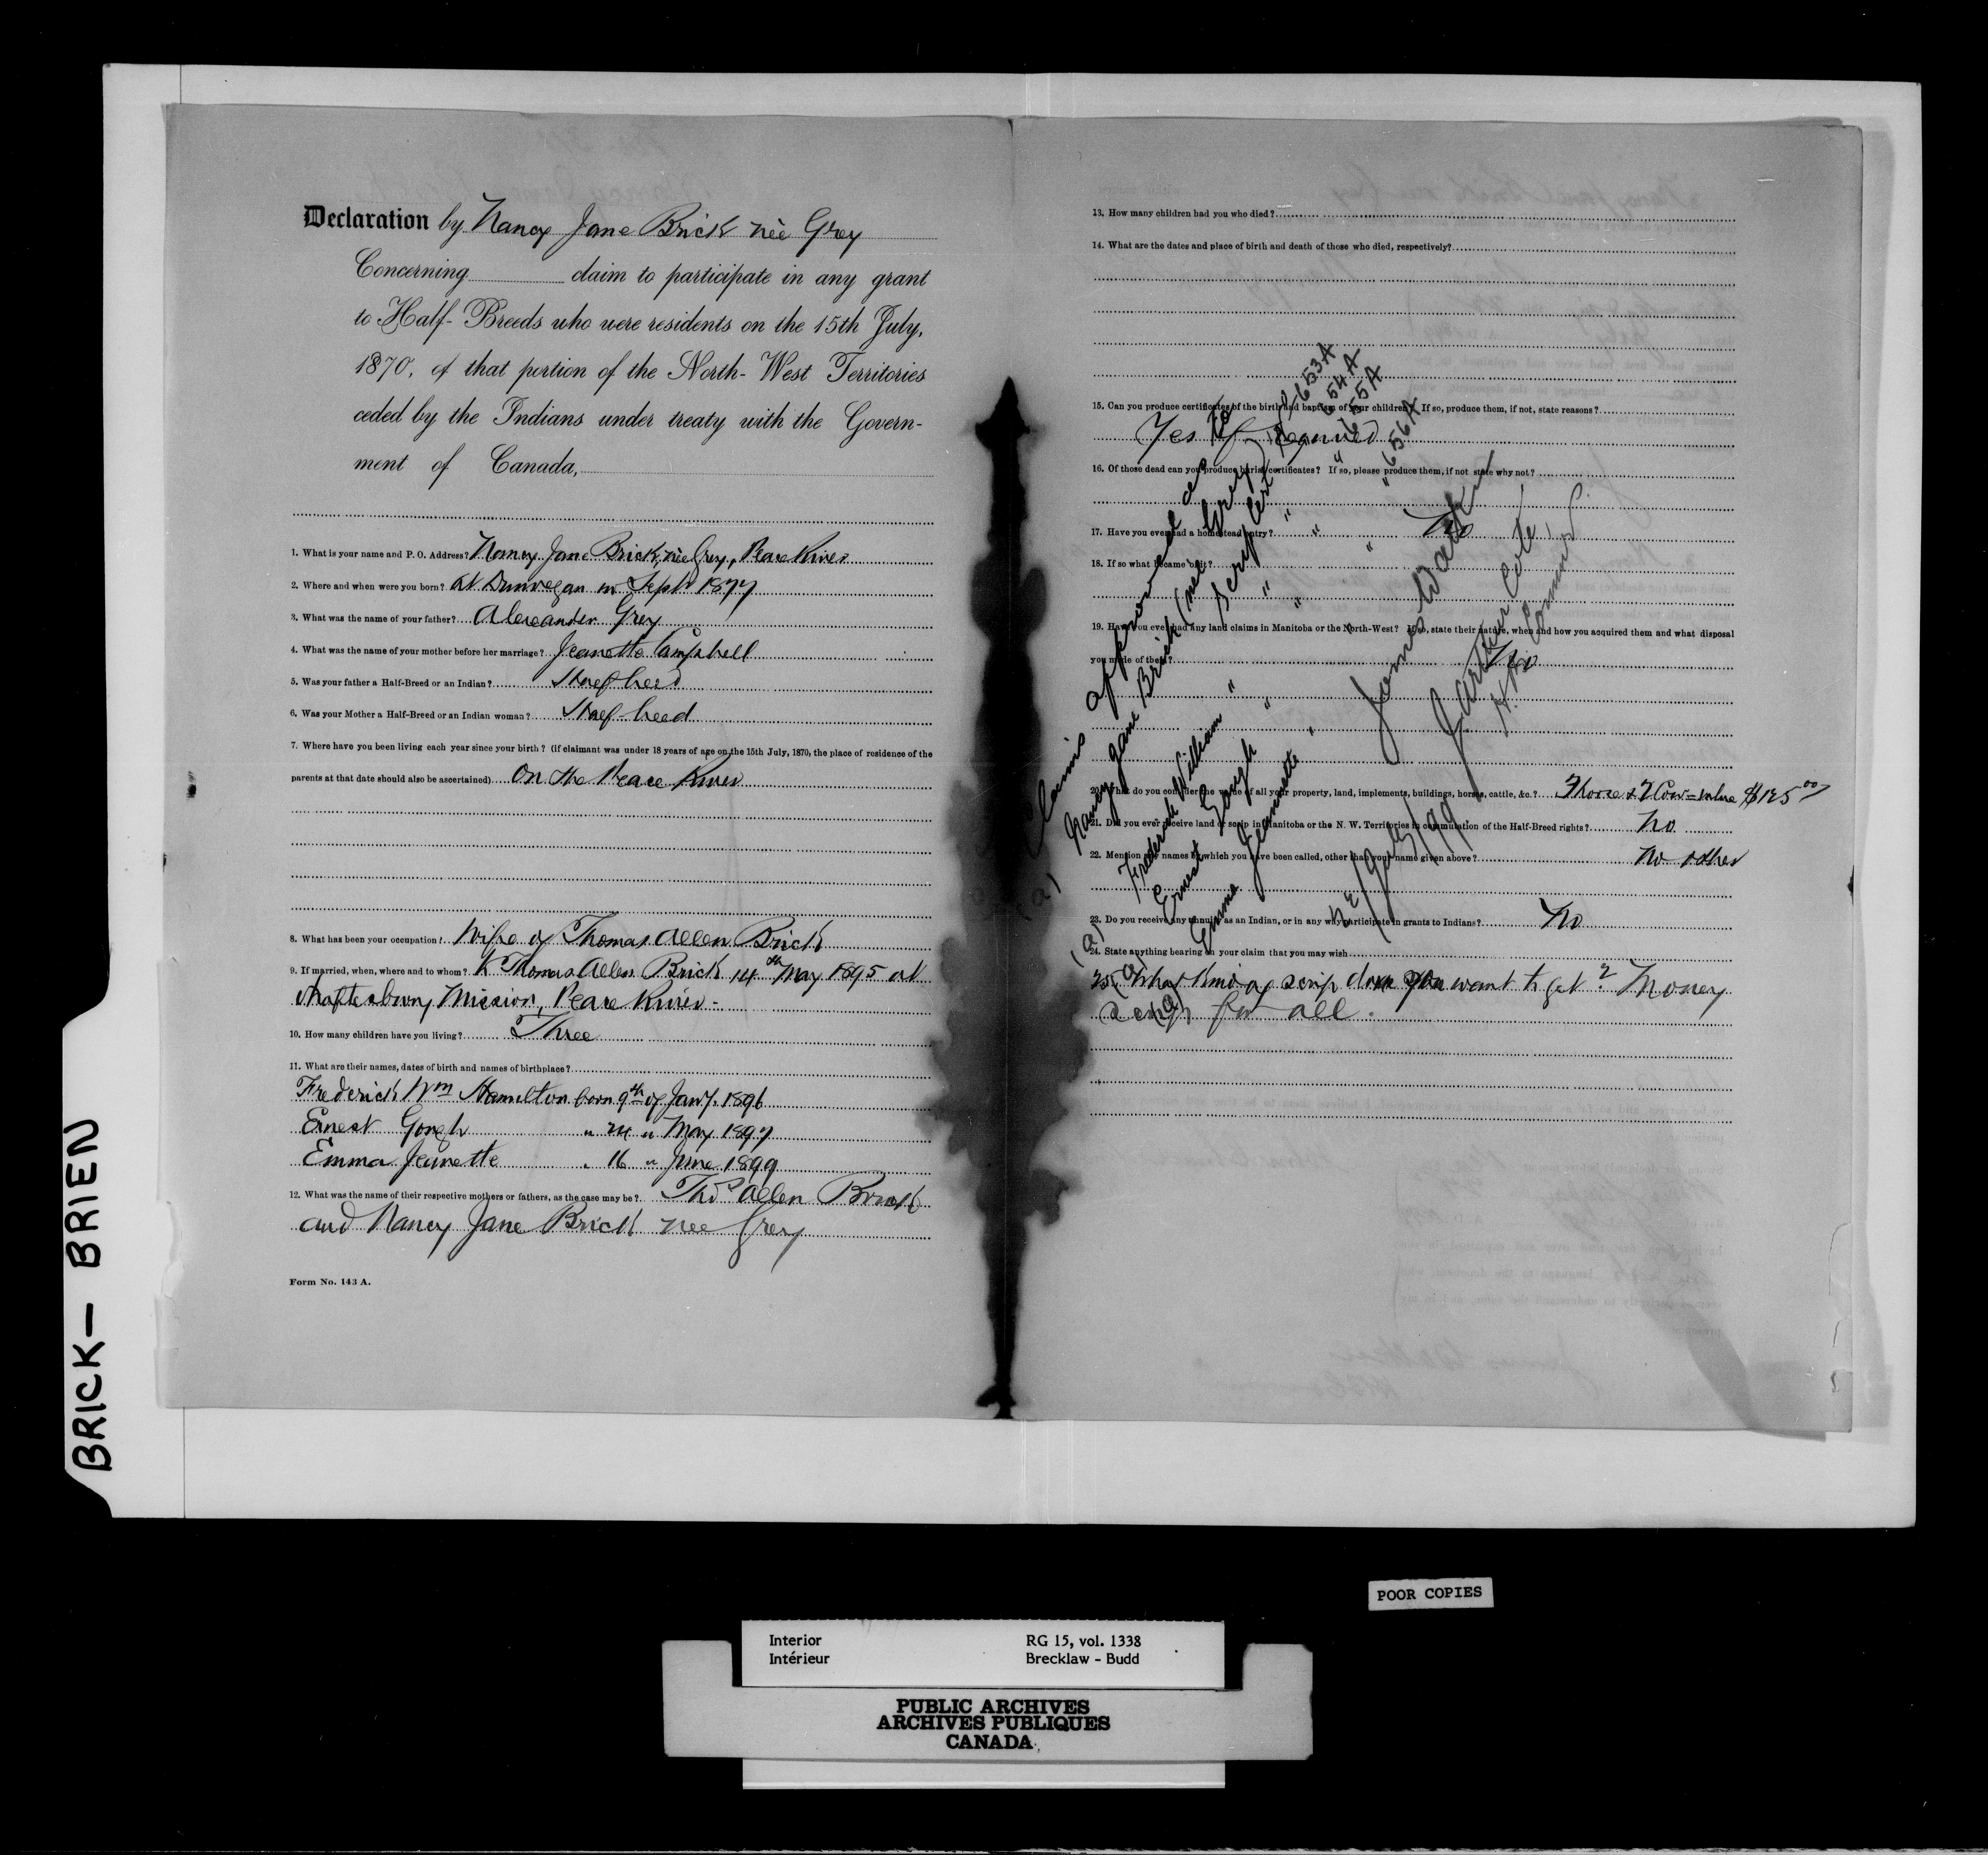 Declaration by Nancy Jane Brick née Grey
Concerning claim to participate in any grant
to Half-Breeds who were residents on the 15th July,
1870, of that portion of the North-West Territories
ceded by the Indians under treaty with the Govern-
ment of Canada,
1. What is your name and P. O. Address? Nancy Jane Brick, née Grey, Peace River
2. Where and when were you born? At Dunvegan in Sept 1877
3. What was the name of your father? Alexander Grey
4. What was the name of your mother before her marriage? Jeanette Campbell
5. Was your father a Half-Breed or an Indian? Half breed
6. Was your Mother a Half-Breed or an Indian woman? Half-breed
7. Where have you been living each year since your birth? (if claimant was under 18 years of age on the 15th July, 1870, the place of residence of the
parents at that date should also be ascertained) On the Peace River
8. What has been your occupation? Wife of Thomas Allen Brick
9. If married, when, where and to whom? To Thomas Allen Brick 14th May 1895 at
Shaftesbury Mission, Peace River -
10. How many children have you living? Three
11. What are their names, dates of birth and names of birthplace?
Frederick Wm Hamilton born 9th of Jany. 1896
Ernest Gough " 24 " May 1897
Emma Jeanette " 16 " June 1899
12. What was the name of their respective mothers or fathers, as the case may be? Thos Allen Brick
and Nancy Jane Brick nee Grey
Form No. 143 A.
13. How many children had you who died?
14. What are the dates and place of birth and death of those who died, respectively?
15. Can you produce certificates of the birth and baptism of your children? If so, produce them, if not, state reasons?
Yes if required
16. Of those dead can you produce burial certificates? If so, please produce them, if not state why not?
17. Have you ever had a homestead entry? No
18. If so what became of it?
19. Have you ever had any land claims in Manitoba or the North-West? If so, state their nature, when and how you acquired them and what disposal
you made of them? No
20. What do you consider the value of all your property, land, implements, buildings, horses, cattle, &c.? 1 Horse & 1 Cow = value $125.00
21. Did you ever receive land or scrip in Manitoba or the N. W. Territories in commutation of the Half-Breed rights? No
22. Mention any names by which you have been called, other than your name given above? No other
23. Do you receive any annuity as an Indian, or in any way participate in grants to Indians? No
24. State anything bearing on your claim that you may wish
25. What kind of scrip does you want to get? Money
scrip for all.
Claims approved as to
(a) Nancy Jane Brick (née Grey) Scrip Cert 653A
(a) Frederick William " " " 654A
(a) Ernest Gough " " " 655A
(a) Emma Jeannette " " " 656A
James Walker
J. Arthur Coté,
H. B. Commrs.
July/99
BRICK - BRIEN
POOR COPIES
Interior RG 15, vol. 1338
Intérieur Brecklaw - Budd
PUBLIC ARCHIVES
ARCHIVES PUBLIQUES
CANADA